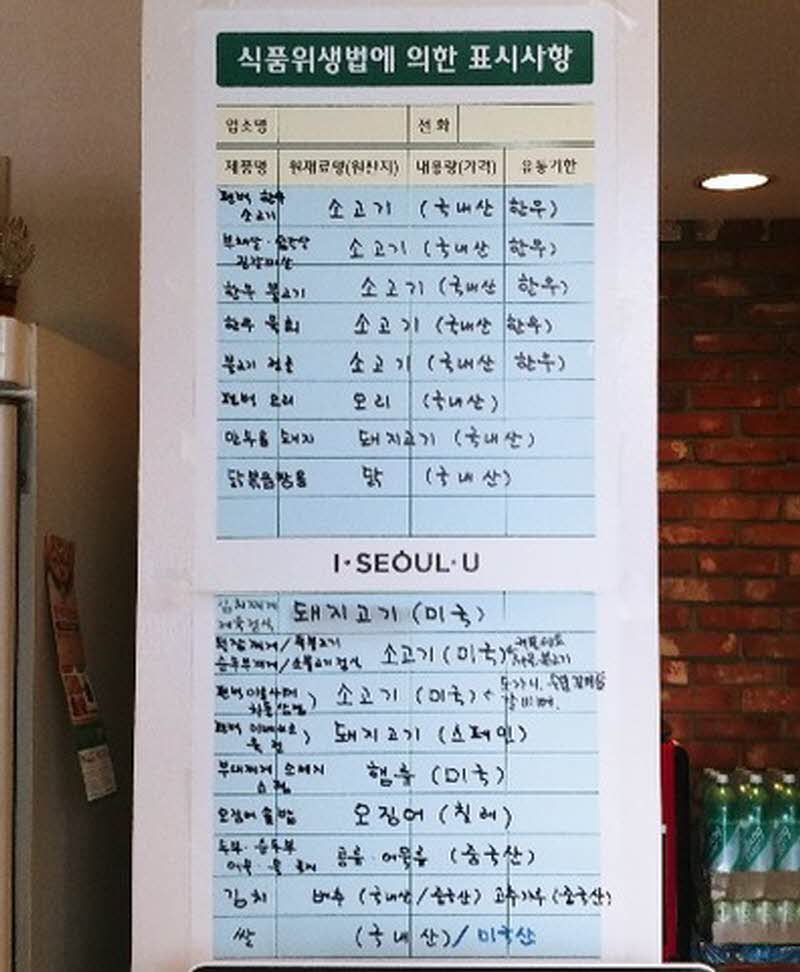 식품위생법에 의한 표시사항
업소명 전 화
제품명 원재료명(원산지) 내용량(가격) 유통기한
편백 한우
소고기 소고기 (국내산 한우)
부채살·
소고기 (국내산 한우)
한우 불고기 소고기 (국내산 한우)
한우 육회 소고기 (국내산 한우)
불고기 전골 소고기 (국내산 한우)
편백 오리 오리 (국내산)
만두용 돼지 돼지고기 (국내산)
닭볶음탕용 닭 (국내산)
I·SEOUL·U
김치찌개
제육정식 돼지고기 (미국)
/ 뚝불고기
순두부찌개/소불고기 정식 소고기 (미국)
편백
소고기 (미국)
갈비뼈.
편백
돼지고기 (스페인)
부대찌개 소세지
스팸 햄류 (미국)
오징어 솥밥 오징어 (칠레)
두부·순두부
콩류·어묵류 (중국산)
김치 배추 (국내산/중국산) 고추가루 (중국산)
쌀 (국내산)/미국산